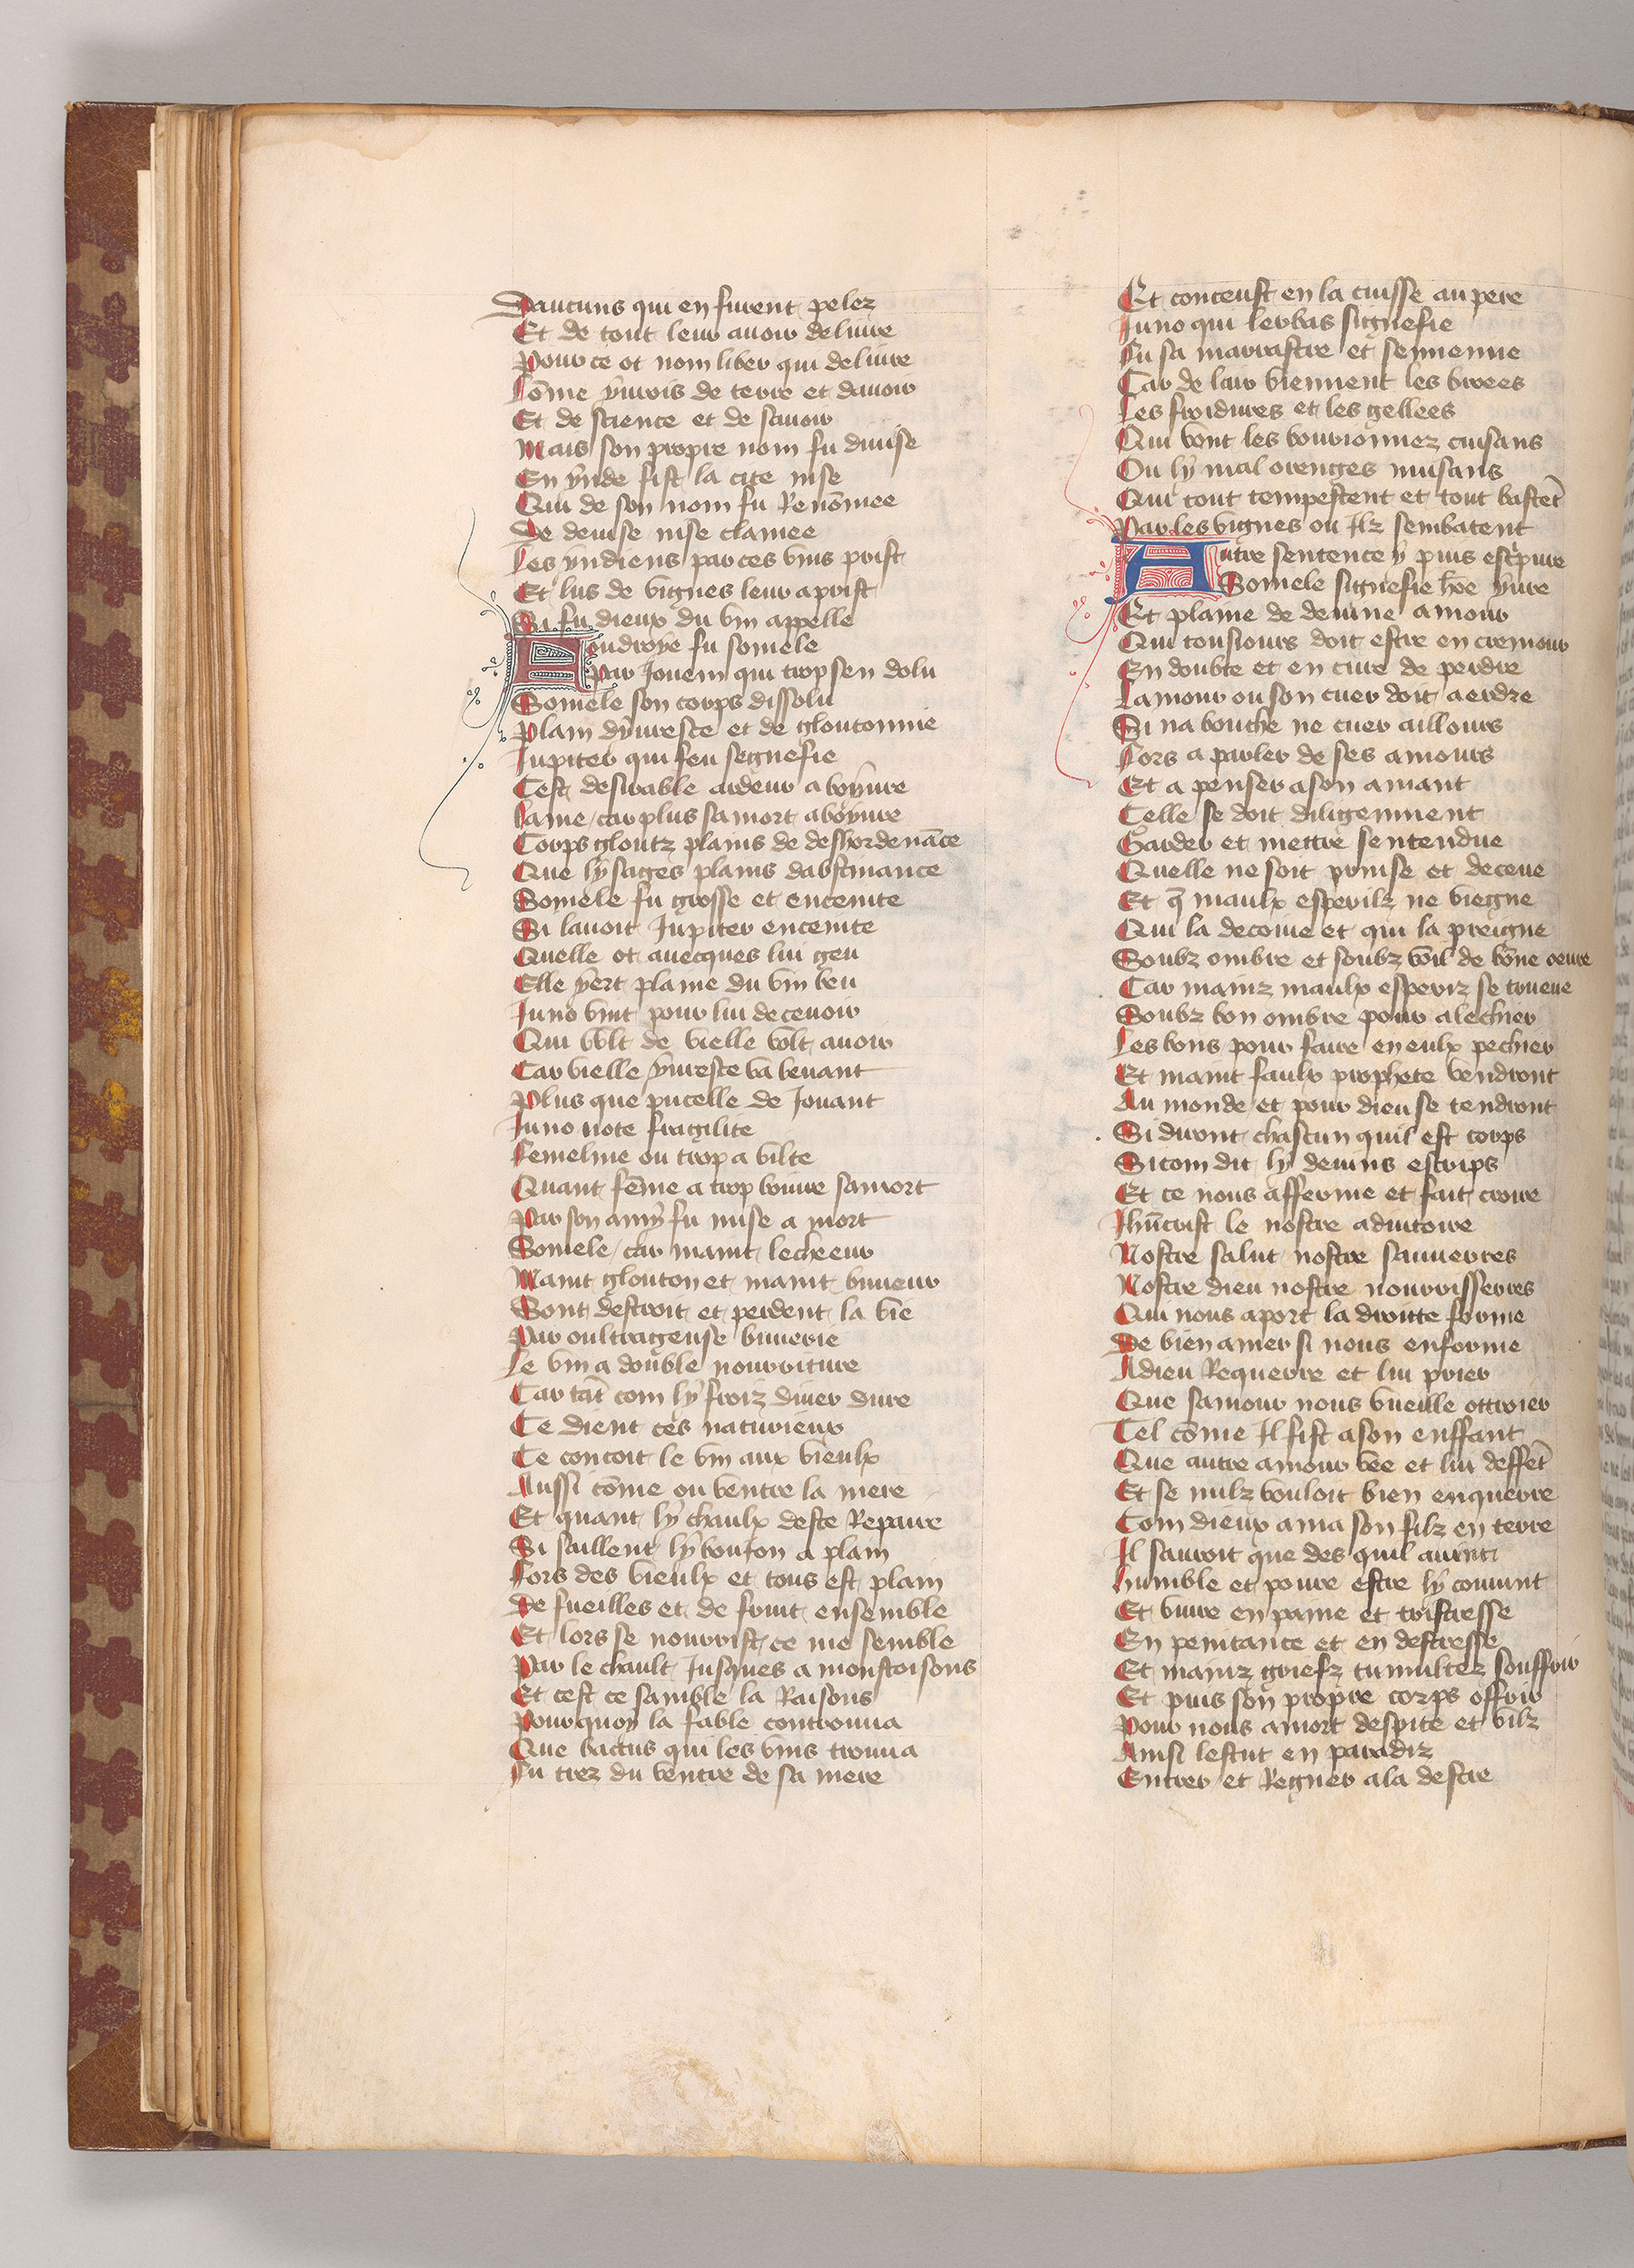 Daucuns qui en furent pelez
Et de tout leur auoir deliure
Pour ce ot nom liber qui deliure
Lõme yurois de terre et dauoir
Et de science et de sauoir
Mais son propre nom fu diuise
En ynde fist la cite nise
Qui de son nom fu Renõmee
De deuise nise clamee
Les yndiens par ces vins prist
Et lus de vignes leur aprist
Si fu dieux du vin appelle
Foudroye fu somele
Par Jouem qui trop sen dolu
Somele son corps dissolu
Plain dyuresce et de gloutonnie
Jupiter qui feu segnefie
Cest desirable ardeur a boyure
Lame car plus samort a boyure
Corps gloutz plains de deshordenãce
Que ly sages plains dabstinance
Somele fu grosse et enceinte
Si lauoit Jupiter enceinte
Quelle ot auecques lui geu
Elle yert plaine du vin beu
Juno vint pour lui deceuoir
Qui volt de vielle volt auoir
Car vielle yuresce va beuant
Plus que pucelle de Jouant
Juno note fragilite
Femeline ou trop a vilte
Quant fẽme a trop boiure samort
Par son amy fu mise a mort
Somele car maint lecheeur
Maint glouton et maint buueur
Sont destroit et perdent la vie
Par oultrageuse buuerie
Le vin a double nourriture
Car tãt com ly froiz diuer dure
Ce dient ces naturieux
Ce concoit le vin aux vieulx
Aussi cõme ou ventre la mere
Et quant ly chaulx deste Repaire
Si saillent ly bouion a plain
Lors des vieulx et tous est plain
De fueilles et de fruit ensemble
Et lors se nourrist ce me semble
Par le chault Jusques a moustoisons
Et cest ce samble la Raisons
Pourquoy la fable controuua
Que bacus qui les vins trouua
Fu trez du ventre de sa mere
Et conceust en la cuisse au pere
Juno qui lerbas signefie
Fu sa marrastre et sennemie
Car de lair viennent les brees
Les froidures et les gellees
Qui vont les bourionnez cuisans
Ou ly mal orenges nuisans
Qui tout tempestent et tout bastẽt
Par les vignes ou Ilz sembatent
Autre sentence y puis escpiure
Somele signefie hõe yure
Et plaine de deuine amour
Qui tousiours doit estre en cremour
En doubte et en cure de perdre
Lamour ou son cuer doit aerdre
Si na bouche ne cuer aillours
Fors a parler de ses amours
Et a penser a son amant
Celle se doit diligemment
Garder et mettre sentendue
Quelle ne soit prinse et deceue
Et q̃ maulx esperilz ne viegne
Qui la decoiue et qui la preigne
Soubz ombre et soubz voil de bõne oeuure
Car mainz maulx esperiz se trueue
Soubz bon ombre pour alechier
Les bons pour faire en eulx pechier
Et maint faulx prophete vendront
Au monde et pour dieu se tendront
Si diront chascun quil est corps
Si com dit ly deuins escrips
Et ce nous afferme et fait croire
Jhũcrist le nostre aduitoire
Nostre salut nostre sauuerres
Nostre dieu nostre nourrisserres
Qui nous aport la droitte forme
De bien amer si nous enforme
A dieu Requerre et lui prier
Que samour nous vueille ottroier
Tel cõme Il fist a son enffant
Que autre amour vee et lui deffẽt
Et se nulz vouloit bien enquerre
Com dieux ama son filz en terre
Il sauroit que des quil auint
Humble et poure estre ly conuint
Et viure en paine et tristresse
En penitance et en destresse
Et mainz griefz tumultez souffrir
Et puis son propre corps offrir
Pour nous a mort despite et vilz
Ainsi lestut en paradiz
Entrer et Regner a la destre